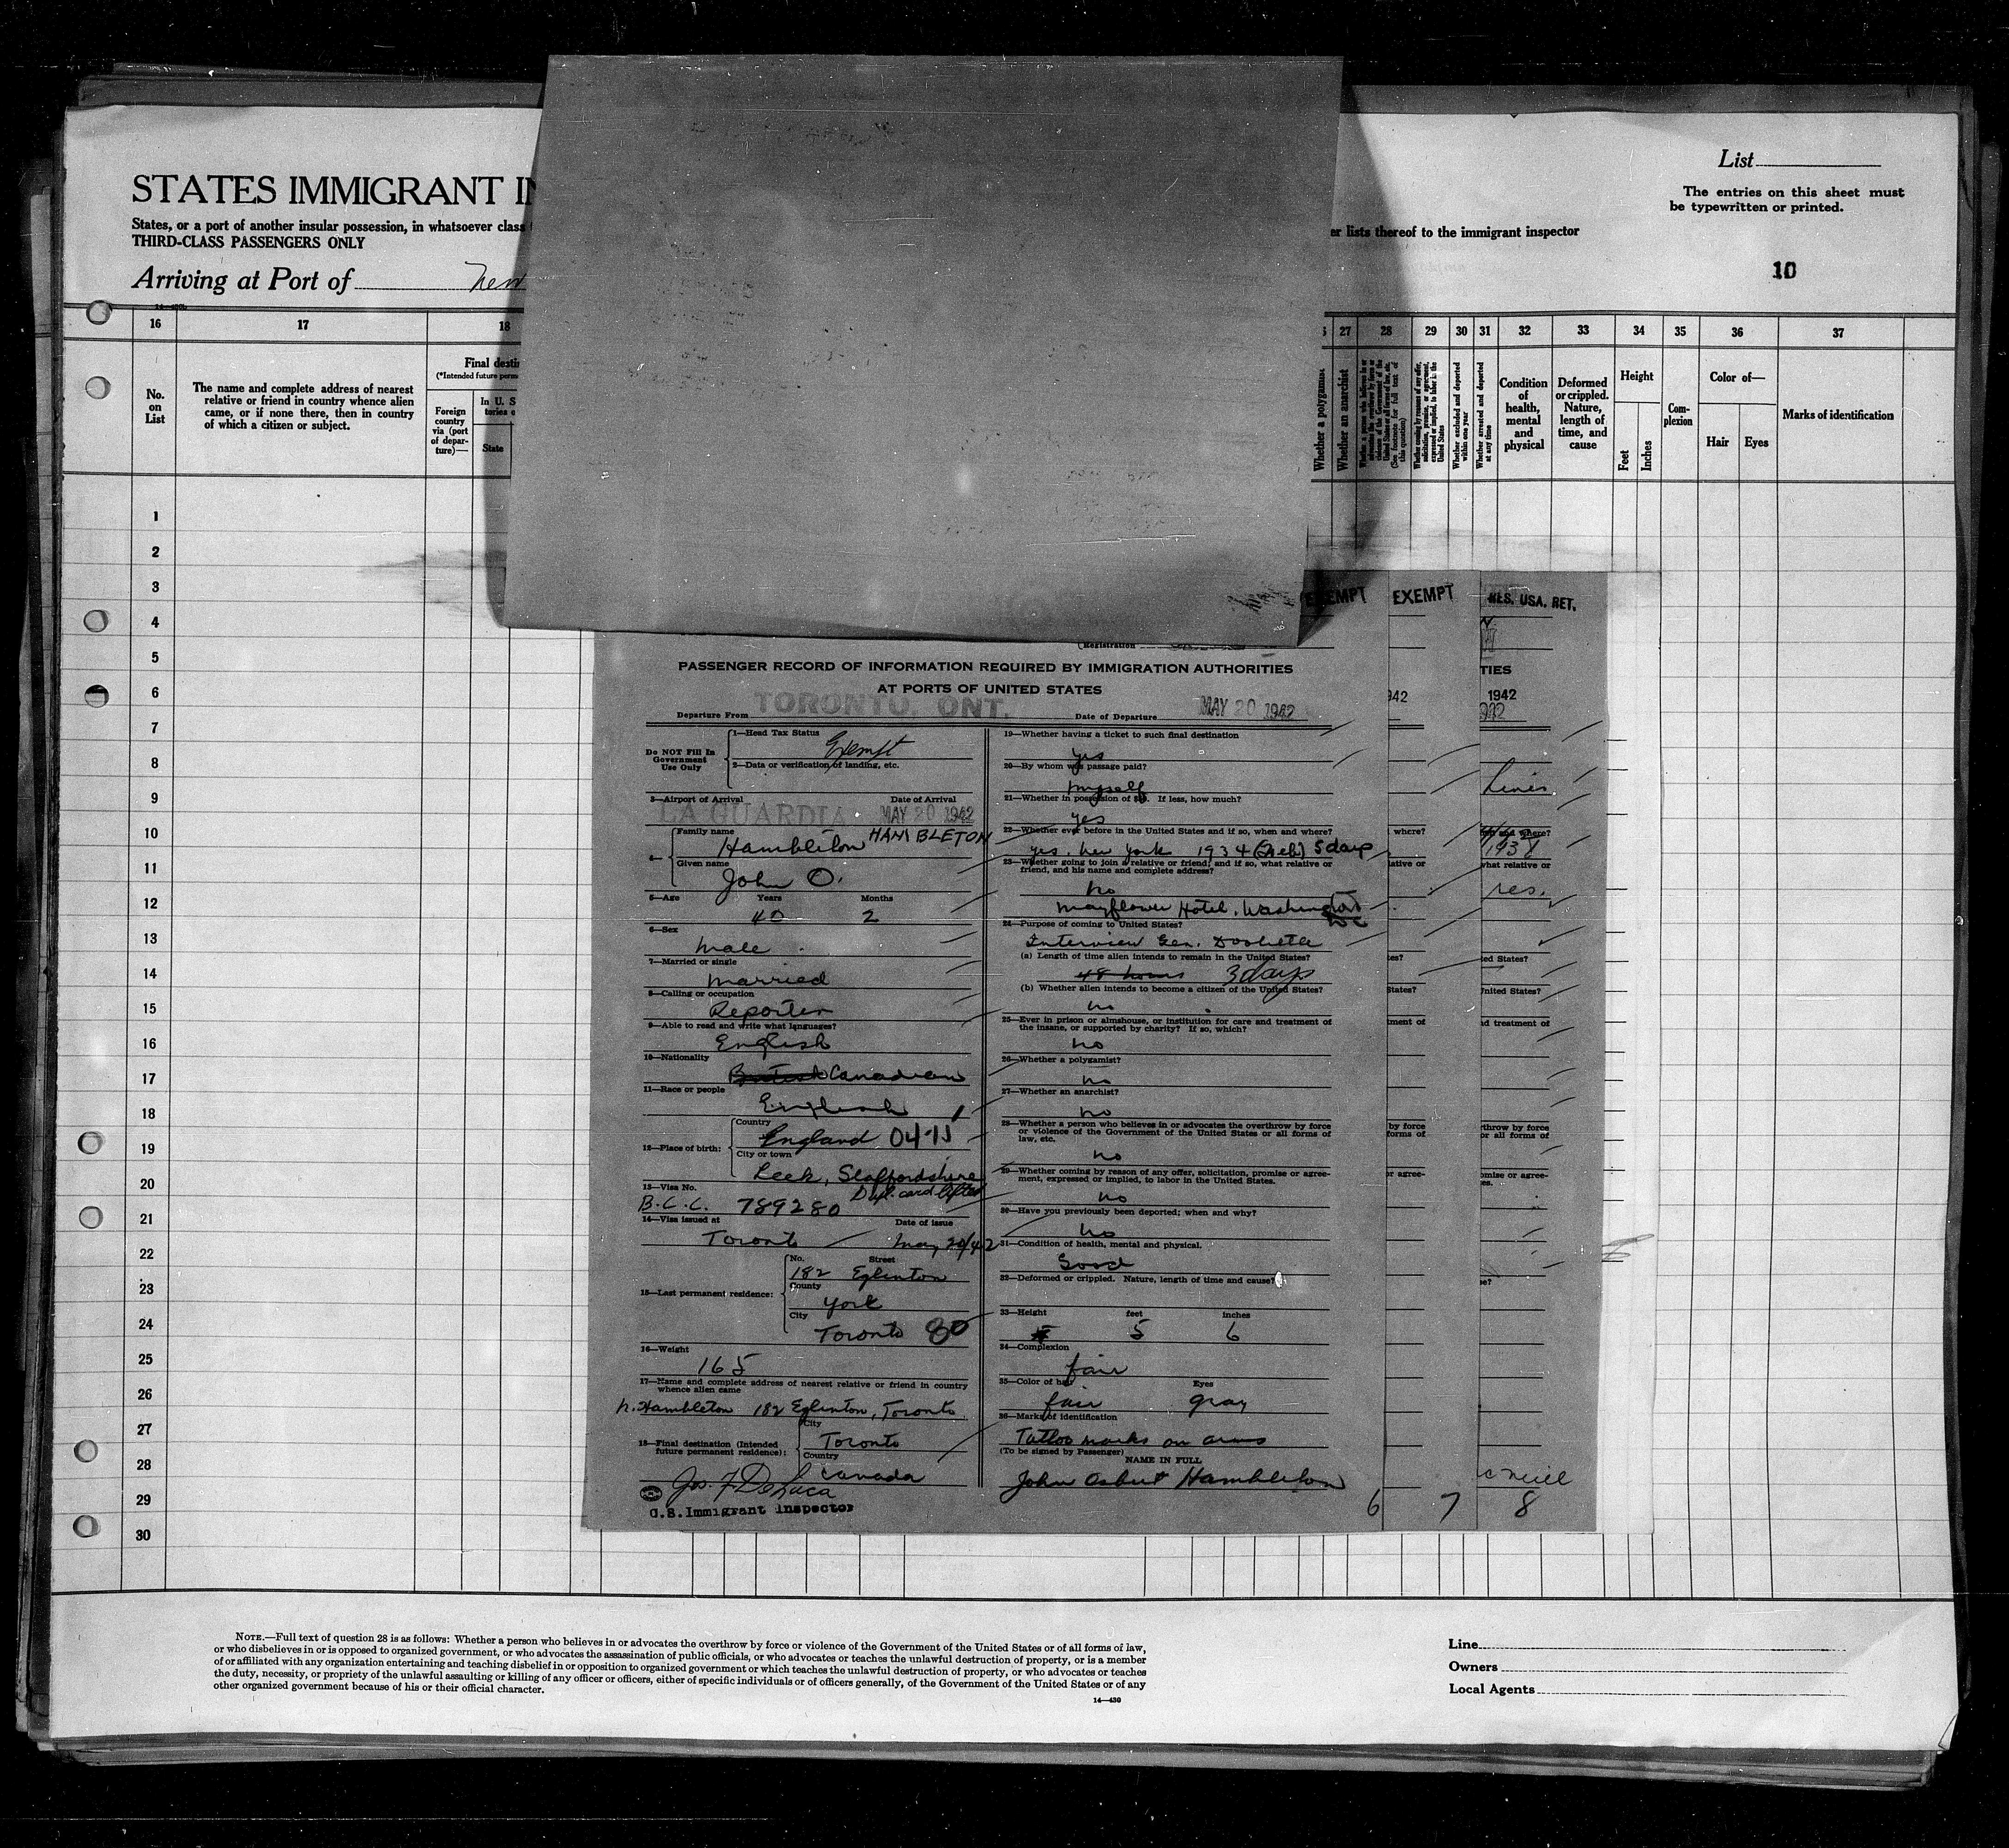 List
The entries on this sheet must
be typewritten or printed.
STATES IMMIGRANT
States, or a port of another insular possession, in whatsoever class
THIRD-CLASS PASSENGERS ONLY
er lists thereof to the immigrant inspector
Arriving at Port of New
10
16 17 18 27 28 29 30 31 32 33 34 35 36 37
No. on List
The name and complete address of nearest
relative or friend in country whence alien
came, or if none there, then in country
of which a citizen or subject.
Final
Foreign country via (port of departure)—
In U. S.
State
Whether a polygamist
Whether an anarchist
(See footnote for full text of this question)
Whether coming by reason of any offer, solicitation, promise, or agreement, expressed or implied, to labor in the United States
Whether excluded and deported within one year
Whether arrested and deported at any time
Condition of health, mental and physical
Deformed or crippled. Nature, length of time, and cause
Height
Feet
Inches
Complexion
Color of—
Hair
Eyes
Marks of identification
1
2
3
4
5
6
7
8
9
10
11
12
13
14
15
16
17
18
19
20
21
22
23
24
25
26
27
28
29
30
EXEMPT EXEMPT USA. RET.
Registration
PASSENGER RECORD OF INFORMATION REQUIRED BY IMMIGRATION AUTHORITIES
AT PORTS OF UNITED STATES
Departure From TORONTO, ONT. Date of Departure MAY 20 1942
Do NOT Fill In
Government
Use Only
1—Head Tax Status
Exempt
2—Data or verification of landing, etc.
3—Airport of Arrival Date of Arrival
LA GUARDIA MAY 20 1942
4— Family name
Hambleton HAMBLETON
Given name
John O.
5—Age Years Months
40 2
6—Sex
Male
7—Married or single
Married
8—Calling or occupation
Reporter
9—Able to read and write what languages?
English
10—Nationality
British Canadian
11—Race or people
English
12—Place of birth:
Country
England 04-11
City or town
Leek, Staffordshire
13—Visa No.
Dupl. card lifted
B.C.C. 789280
14—Visa issued at Date of issue
Toronto May 20/42
15—Last permanent residence:
No. Street
182 Eglinton
County
York
City
Toronto 80
16—Weight
165
17—Name and complete address of nearest relative or friend in country
whence alien came
N. Hambleton 182 Eglinton, Toronto
18—Final destination (Intended
future permanent residence):
City
Toronto
Country
Canada
Jos. F. DeLuca
U.S. Immigrant Inspector
19—Whether having a ticket to such final destination
yes
20—By whom was passage paid?
myself
21—Whether in possession of $50. If less, how much?
yes
22—Whether ever before in the United States and if so, when and where?
yes. New York 1934 (Feb) 5 days
23—Whether going to join a relative or friend; and if so, what relative or
friend, and his name and complete address?
no
Mayflower Hotel, Washington
DC
24—Purpose of coming to United States?
Interview Gen. Doolittle
(a) Length of time alien intends to remain in the United States?
48 hours 3 days
(b) Whether alien intends to become a citizen of the United States?
no
25—Ever in prison or almshouse, or institution for care and treatment of
the insane, or supported by charity? If so, which?
no
26—Whether a polygamist?
no
27—Whether an anarchist?
no
28—Whether a person who believes in or advocates the overthrow by force
or violence of the Government of the United States or all forms of
law, etc.
no
29—Whether coming by reason of any offer, solicitation, promise or agree-
ment, expressed or implied, to labor in the United States.
no
30—Have you previously been deported; when and why?
no
31—Condition of health, mental and physical.
Good
32—Deformed or crippled. Nature, length of time and cause?
33—Height feet inches
5 6
34—Complexion
fair
35—Color of hair Eyes
fair gray
36—Marks of identification
Tattoo marks on arms
(To be signed by Passenger)
NAME IN FULL
John Osbert Hambleton
6 7 8
TIES
942 1942
where?
1938
what relative or
res.
ed States?
States? United States?
ment of nd treatment of
by force throw by force
forms of or all forms of
or agree- omise or agree-
NOTE.—Full text of question 28 is as follows: Whether a person who believes in or advocates the overthrow by force or violence of the Government of the United States or of all forms of law,
or who disbelieves in or is opposed to organized government, or who advocates the assassination of public officials, or who advocates or teaches the unlawful destruction of property, or is a member
of or affiliated with any organization entertaining and teaching disbelief in or opposition to organized government or which teaches the unlawful destruction of property, or who advocates or teaches
the duty, necessity, or propriety of the unlawful assaulting or killing of any officer or officers, either of specific individuals or of officers generally, of the Government of the United States or of any
other organized government because of his or their official character.
14—430
Line
Owners
Local Agents